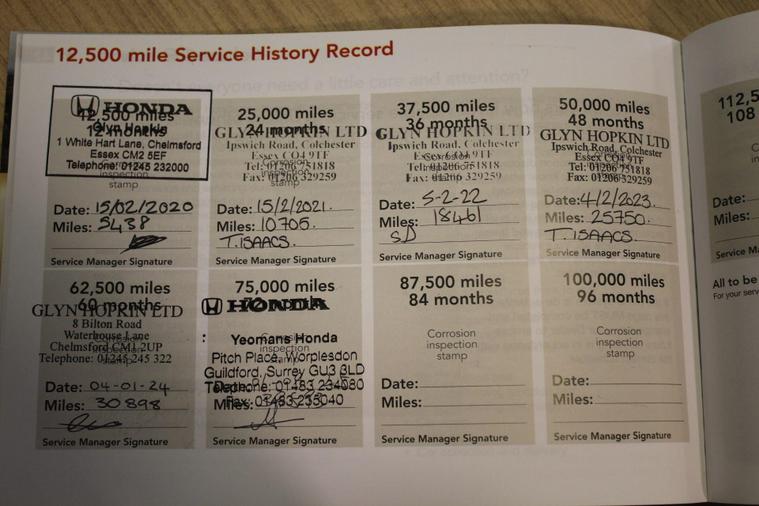 12,500 mile Service History Record
12,500 miles
12 months
HONDA
Glyn Hopkin
1 White Hart Lane, Chelmsford
Essex CM2 5EF
Telephone: 01245 232000
stamp
Date: 15/02/2020
Miles: 5438
Service Manager Signature
25,000 miles
24 months
GLYN HOPKIN LTD
Ipswich Road, Colchester
Essex CO4 9TF
Tel: 01206 751818
Fax: 01206 329259
stamp
Date: 15/2/2021.
Miles: 10705.
T. ISAACS.
Service Manager Signature
37,500 miles
36 months
GLYN HOPKIN LTD
Ipswich Road, Colchester
Essex CO4 9TF
Tel: 01206 751818
Fax: 01206 329259
Date: 5-2-22
Miles: 18461
SD
Service Manager Signature
50,000 miles
48 months
GLYN HOPKIN LTD
Ipswich Road, Colchester
Essex CO4 9TF
Tel: 01206 751818
Fax: 01206 329259
Date: 4/2/2023.
Miles: 25750.
T. ISAACS.
Service Manager Signature
62,500 miles
60 months
GLYN HOPKIN LTD
8 Bilton Road
Waterhouse Lane
Chelmsford CM1 2UP
Telephone: 01245 245 322
Date: 04-01-24
Miles: 30898
Service Manager Signature
75,000 miles
HONDA
Yeomans Honda
Pitch Place, Worplesdon
Guildford, Surrey GU3 3LD
Telephone: 01483 234080
Fax: 01483 233040
Date:
Miles:
Service Manager Signature
87,500 miles
84 months
Corrosion
inspection
stamp
Date:
Miles:
Service Manager Signature
100,000 miles
96 months
Corrosion
inspection
stamp
Date:
Miles:
Service Manager Signature
112,5
108
Date:
Miles:
Service M
All to be
For your serv